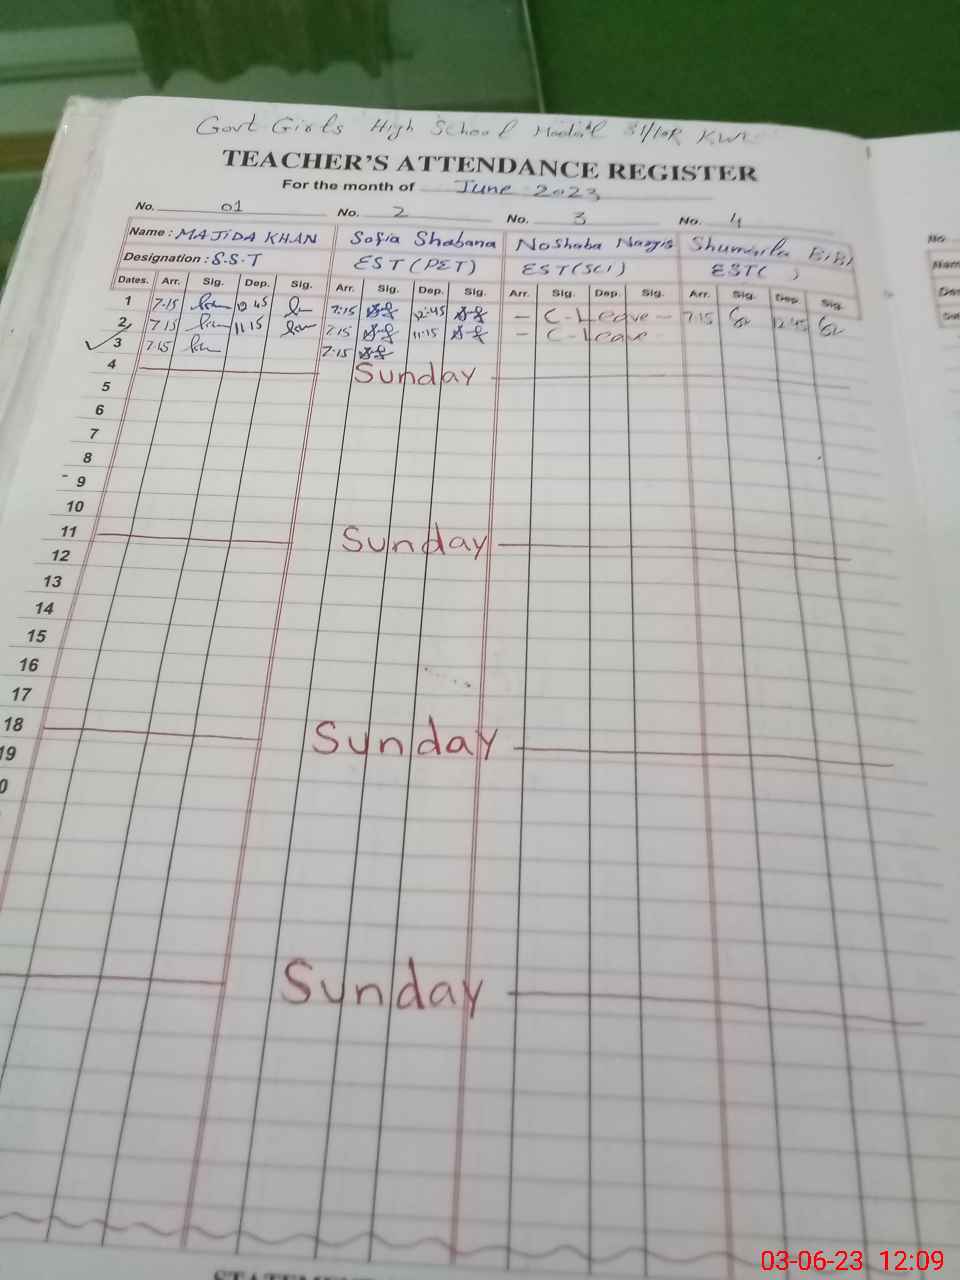 Govt Girls High School Model 31/10R KWL
TEACHER'S ATTENDANCE REGISTER
For the month of June 2023
No. 01 No. 2 No. 3 No. 4
Name : MAJIDA KHAN Sofia Shabana Noshaba Nargis Shumaila BiBi
Designation : S.S.T EST (PET) EST (SCI) EST( )
Dates. Arr. Sig. Dep. Sig. Arr. Sig. Dep. Sig. Arr. Sig. Dep. Sig. Arr. Sig. Dep. Sig.
1 7:15 12:45 7:15 12:45 - C-Leave - 7:15 12:45
2 7:15 11:15 7:15 11:15 - C-Leave
3 7:15 7:15
4 Sunday
5
6
7
8
9
10
11 Sunday
12
13
14
15
16
17
18 Sunday
19
Sunday
03-06-23 12:09